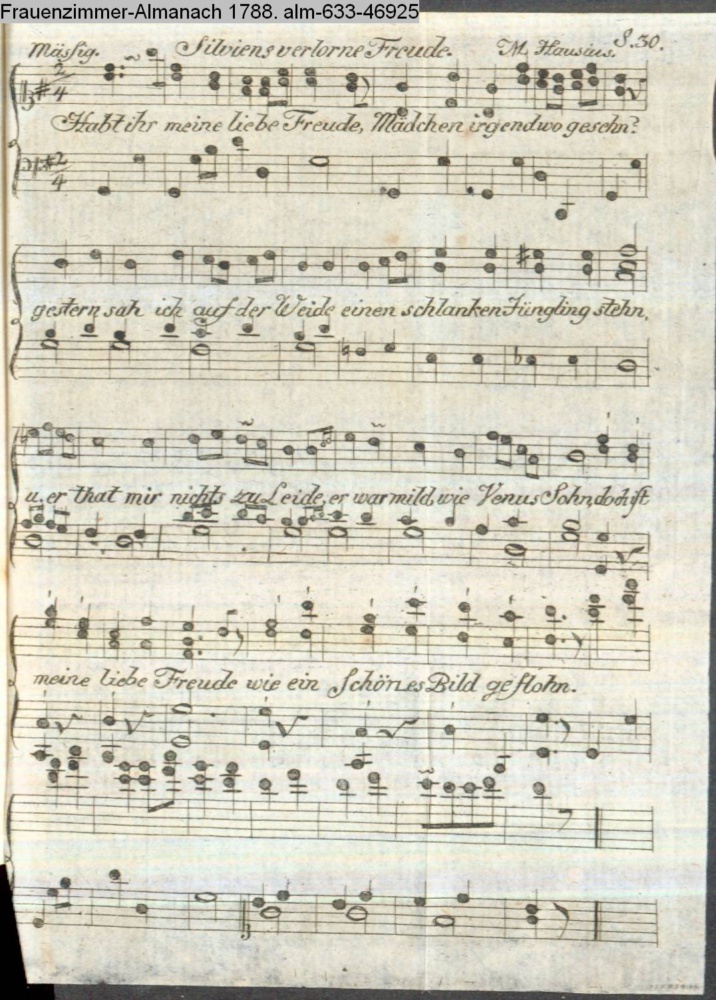 Frauenzimmer-Almanach 1788. alm-633-46925
S. 30.
Mässig. Silviens verlorne Freude. M. Hausius.
2/4
Habt ihr meine liebe Freude, Mädchen irgendwo gesehn?
2/4
gestern sah ich auf der Weide einen schlanken Jüngling stehn,
u. er that mir nichts zu Leide, er war mild, wie Venus Sohn, doch ist
meine liebe Freude wie ein Schönes Bild geflohn.